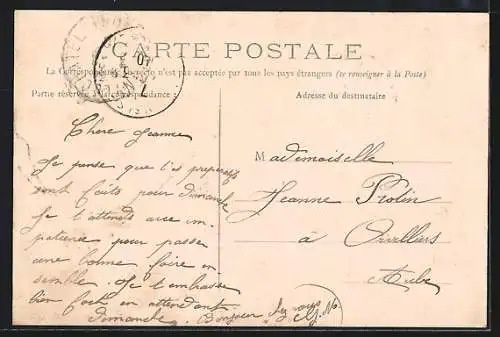 CARTE POSTALE
La Correspondance au recto n'est pas acceptée par tous les pays étrangers (se renseigner à la Poste)
Partie réservée à la correspondance
Adresse du destinataire
Chere Jeanne
Je pense que t'es preparatifs
sont faits pour dimanche
Je t'attends avec im-
patience pour passer
une bonne foire en
semble. Je t'embrasse
bien fort en attendant
dimanche. Bonjour chez vous
Mademoiselle
Jeanne
à
Aube